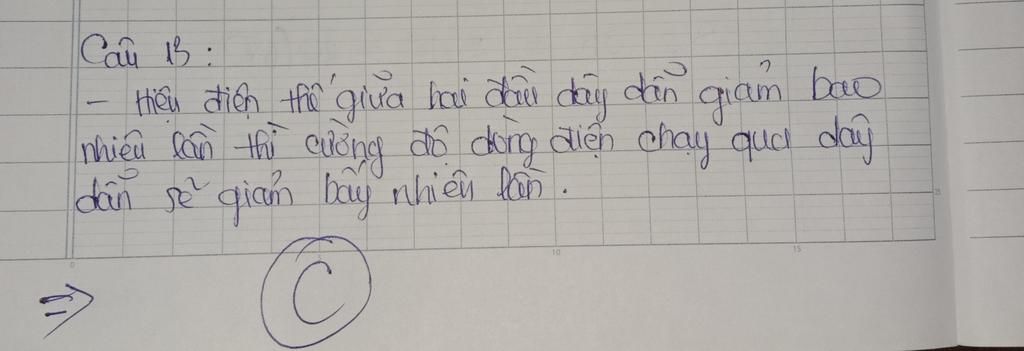 Câu 13:
- Hiệu điện thế giữa hai đầu dây dẫn giảm bao
nhiêu lần thì cường độ dòng điện chạy qua dây
dẫn sẽ giảm bấy nhiêu lần.
10
15
⇒ C